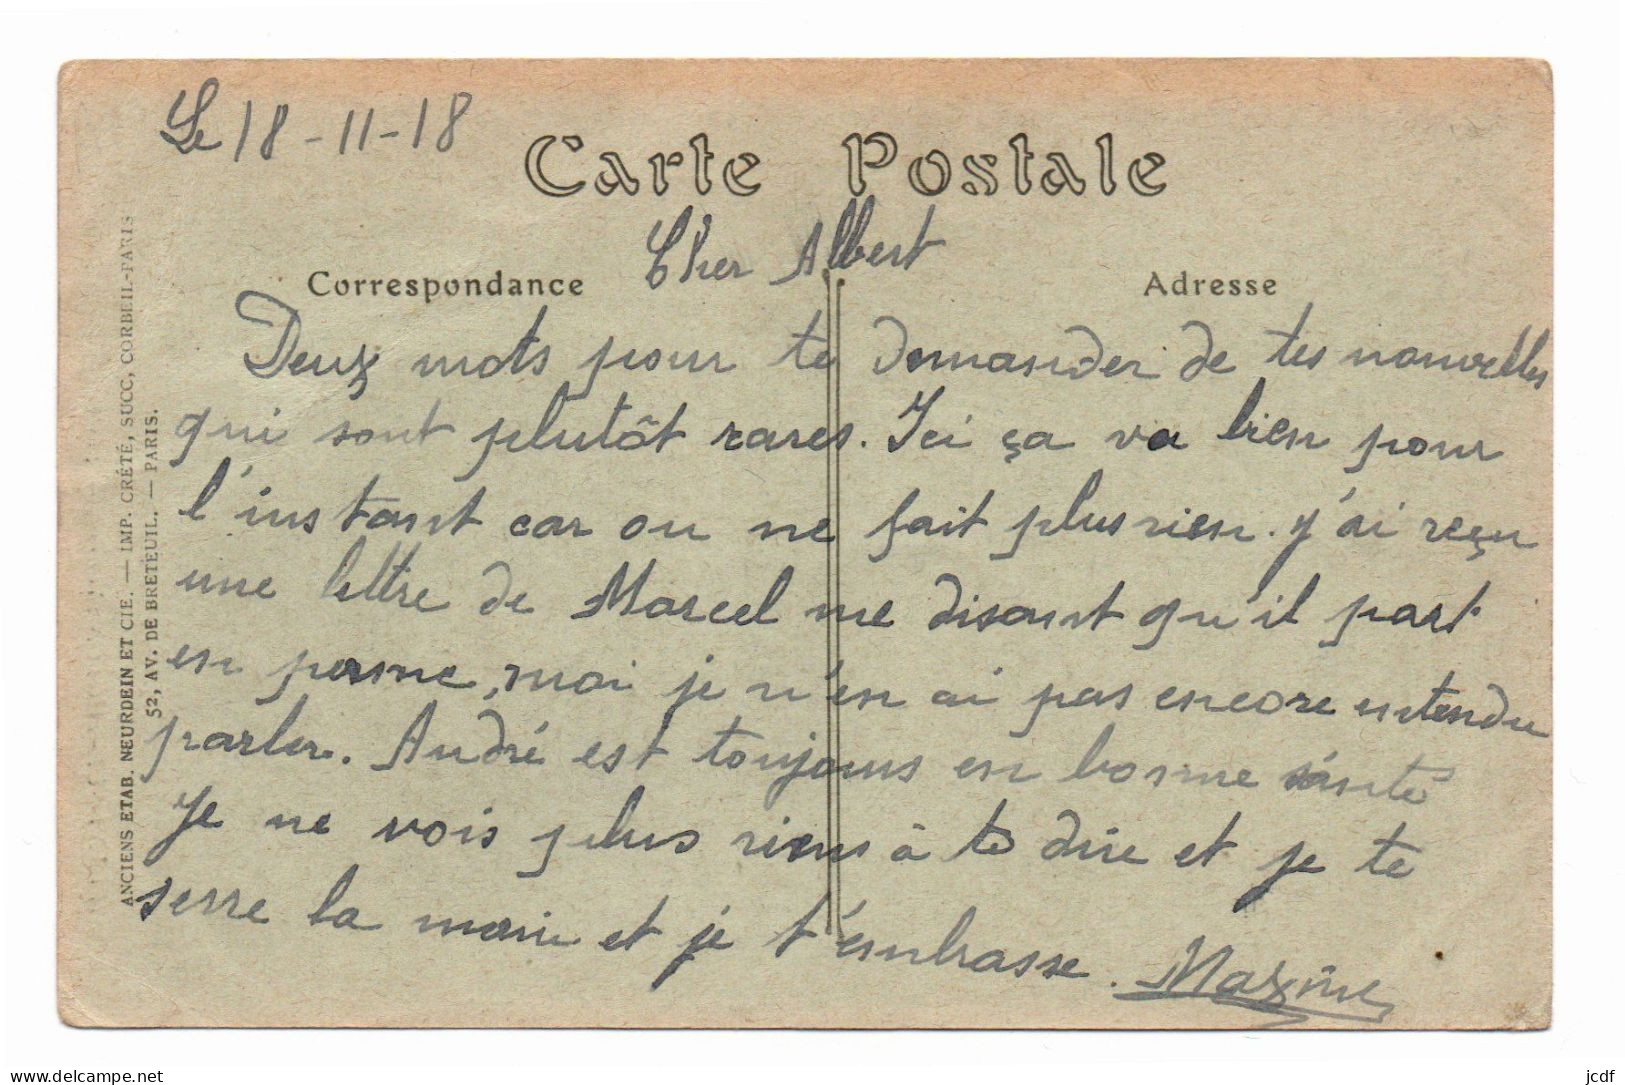 Le 18-11-18
Carte Postale
Cher Albert
Correspondance
Adresse
Deux mots pour te demander de tes nouvelles
qui sont plutôt rares. Ici ça va bien pour
l'instant car on ne fait plus rien. J'ai reçu
une lettre de Marcel me disant qu'il part
en perme, moi je n'en ai pas encore entendu
parler. André est toujours en bonne santé
Je ne vois plus riens à te dire et je te
serre la main et je t'embrasse. Maxime
ANCIENS ETAB. NEURDEIN ET CIE. — IMP. CRÉTÉ, SUCC, CORBEIL-PARIS
52, AV. DE BRETEUIL. — PARIS.
www.delcampe.net
jcdf